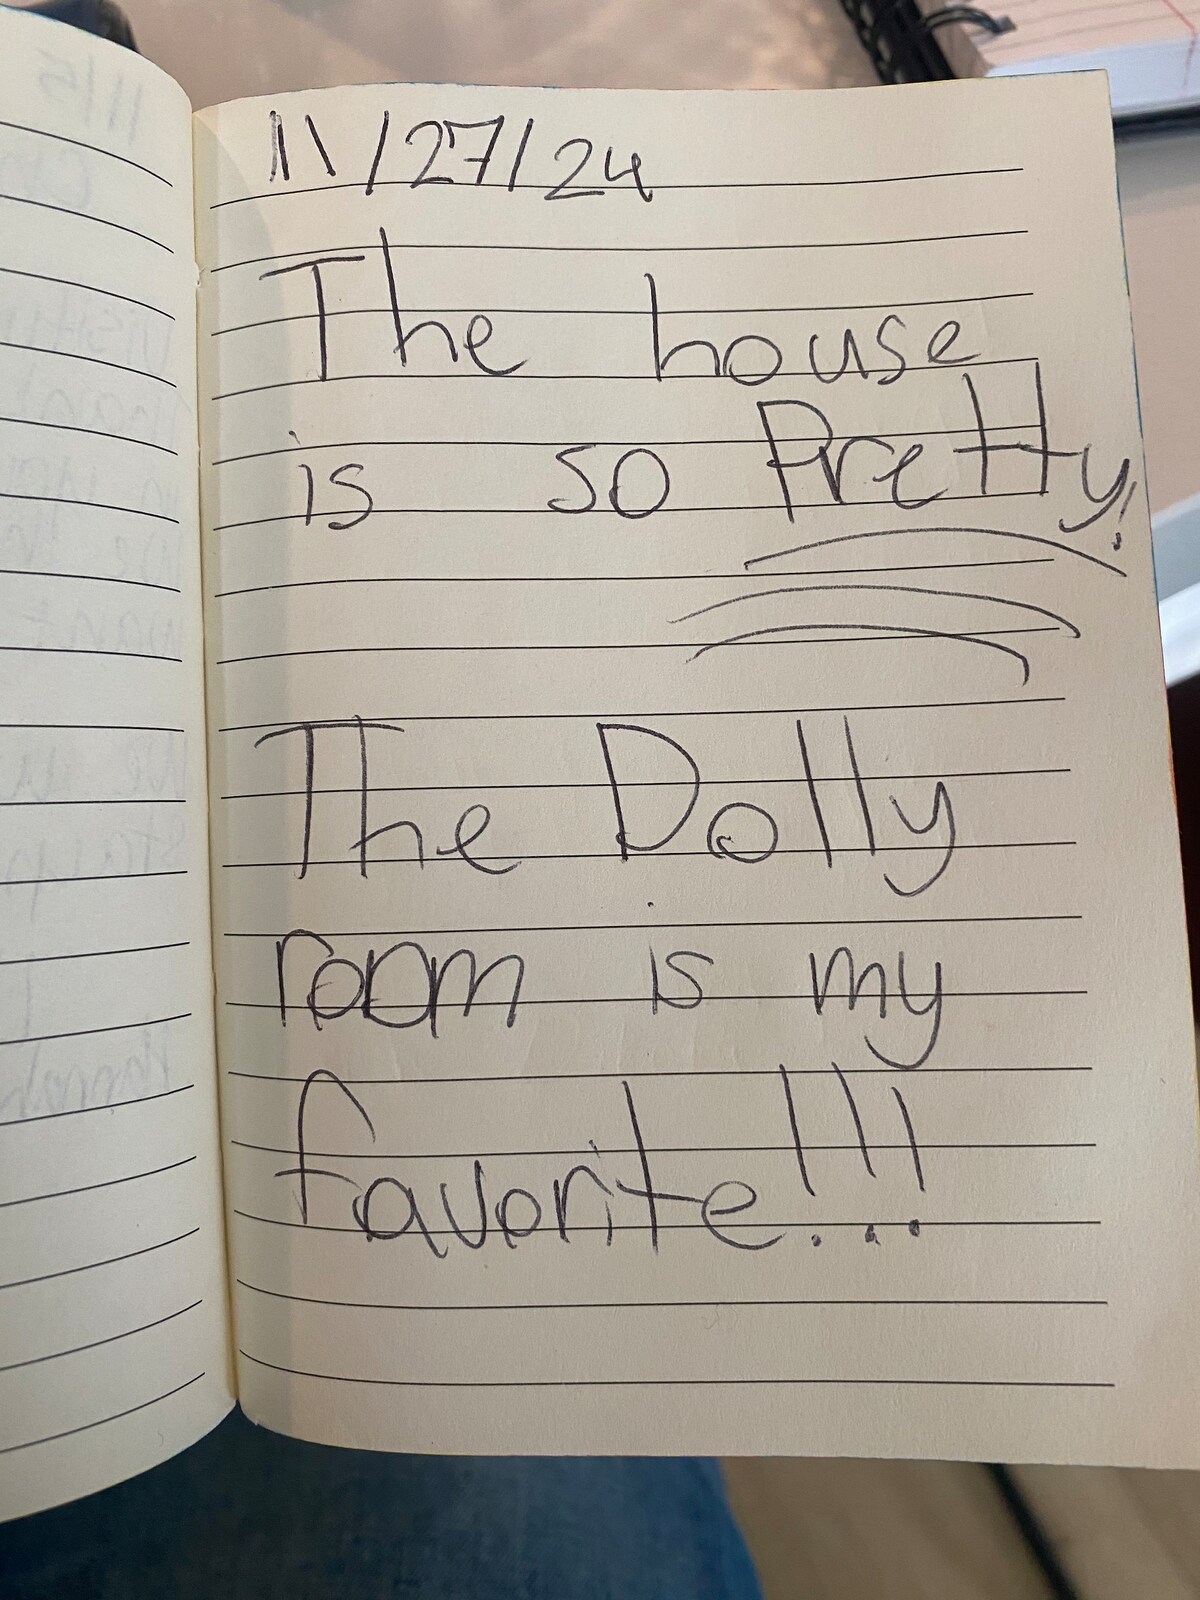 11/27/24
The house
is so Pretty!
The Dolly
room is my
favorite!!!